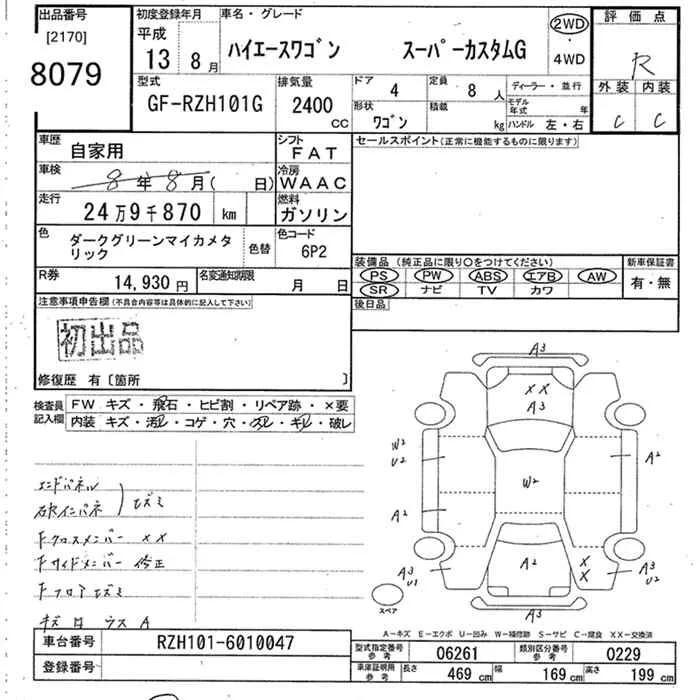 出品番号
[2170]
8079
初度登録年月
平成
13年 8月
車名・グレード
ハイエースワゴン スーパーカスタムG
2WD
・
4WD
評価点
R
外装 内装
C C
型式
GF-RZH101G
排気量
2400
CC
ドア
4
定員
8 人
形状
ワゴン
積載
kg
ディーラー・並行
モデル年式 年
ハンドル 左・右
車歴
自家用
シフト
FAT
車検
8年 8月( 日)
冷房
WAAC
走行
24万9千870 km
燃料
ガソリン
色
ダークグリーンマイカメタリック
色替
色コード
6P2
R券
14,930円
名変通知期限
月 日
セールスポイント(正常に機能するものに限ります)
装備品(純正品に限り〇をつけてください)
PS PW ABS エアB AW
SR ナビ TV カワ
新車保証書
有・無
後日品
注意事項申告欄(不具合内容等は具体的に記入して下さい)
初出品
修復歴 有〔箇所 〕
検査員記入欄
FW キズ・飛石・ヒビ割・リペア跡・×要
内装 キズ・汚レ・コゲ・穴・スレ・キレ・破レ
エンドパネル
ヒズミ
Fクロスメンバー ××
Fサイドメンバー 修正
Fフロアヒズミ
A3
××
A3
W2
U2
A2
W2
A2
A2
A3
U1
×
×
A3
U2
A3
スペア
A―キズ E―エクボ U―凹み W―補修跡 S―サビ C―腐食 XX―交換済
車台番号
RZH101-6010047
登録番号
型式指定番号
参考
06261
類別区分番号
参考
0229
車庫証明用
参考
長さ 469 cm
幅 169 cm
高さ 199 cm